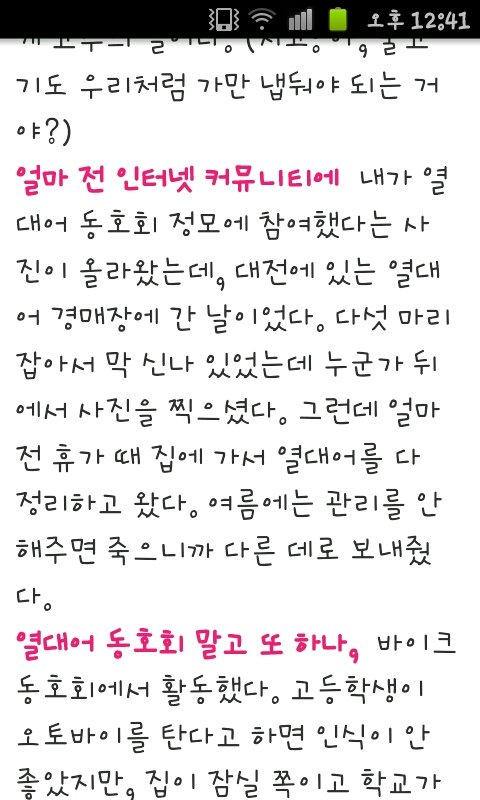 오후 12:41
기도 우리처럼 가만 냅둬야 되는 거
야?)
얼마 전 인터넷 커뮤니티에 내가 열
대어 동호회 정모에 참여했다는 사
진이 올라왔는데, 대전에 있는 열대
어 경매장에 간 날이었다. 다섯 마리
잡아서 막 신나 있었는데 누군가 뒤
에서 사진을 찍으셨다. 그런데 얼마
전 휴가 때 집에 가서 열대어를 다
정리하고 왔다. 여름에는 관리를 안
해주면 죽으니까 다른 데로 보내줬
다.
열대어 동호회 말고 또 하나, 바이크
동호회에서 활동했다. 고등학생이
오토바이를 탄다고 하면 인식이 안
좋았지만, 집이 잠실 쪽이고 학교가